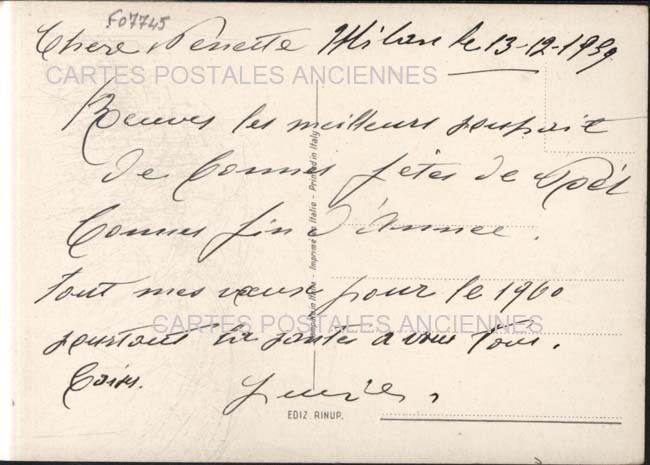 F07745
Chere Milan le 13-12-1959
CARTES POSTALES ANCIENNES
les meilleurs souhait
de Bonnes fêtes de Noël
Bonnes fin d'Année.
Tout mes vœux pour le 1960
CARTES POSTALES ANCIENNES
surtout la santé a vous tous.
EDIZ. RINUP.
Imprimé en Italie - Printed in Italy